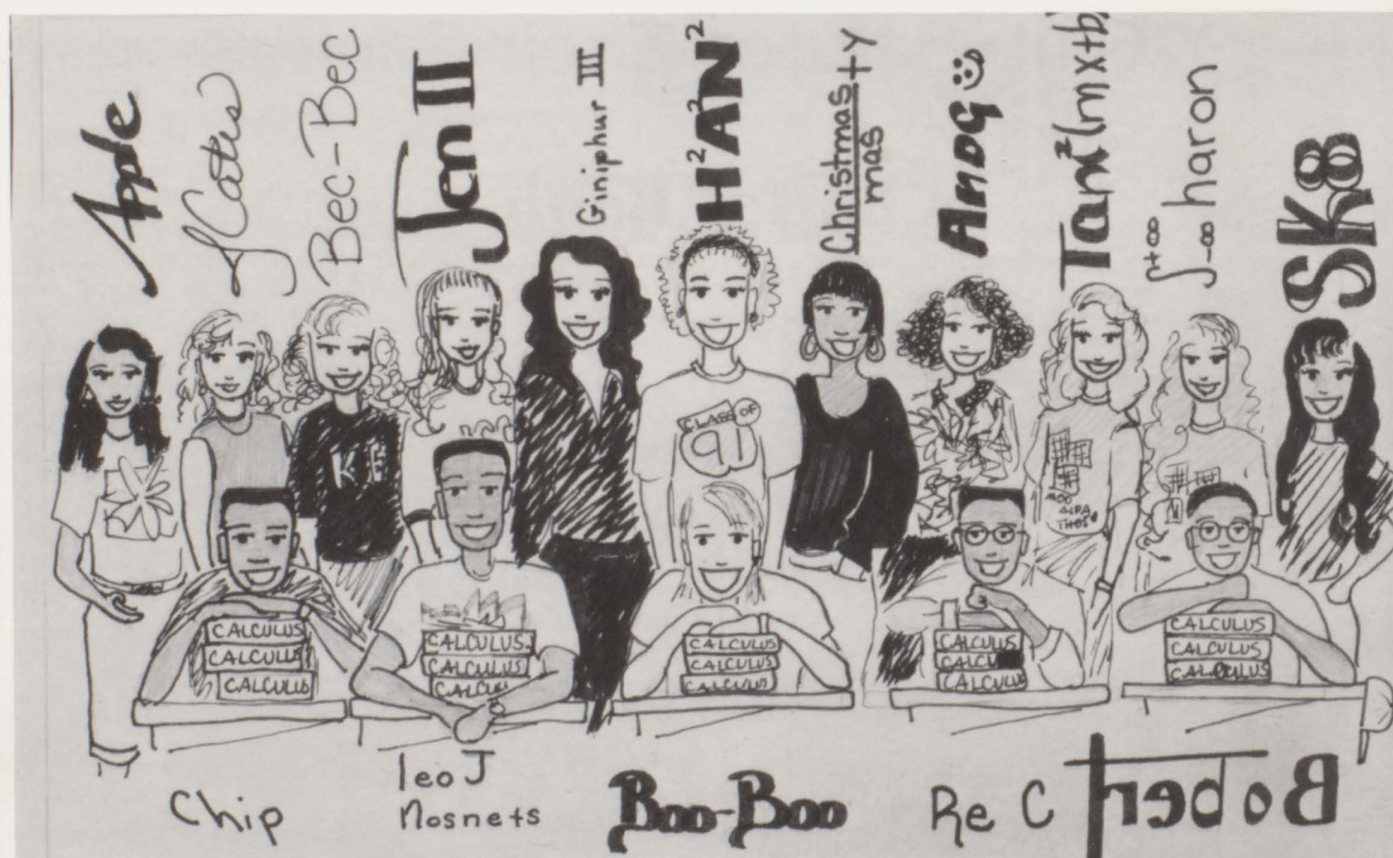 Apple
JCates
Bec-Bec
Jen II
Giniphur III
H²A²N²
Christmas+y
mas
AndG
Tan²(mx+b)
∫-∞+∞ haron
SK8
KE
CLASS OF
91
MOO
CALCULUS
CALCULUS
CALCULUS
CALCULUS
CALCULUS
CALCUL
CALCULUS
CALCULUS
CALCULUS
CALCULUS
CALCU
CALCULUS
CALCULUS
CALCULUS
CALCULUS
Chip
leo J
Nosnets
Boo-Boo
Re C
Bobert